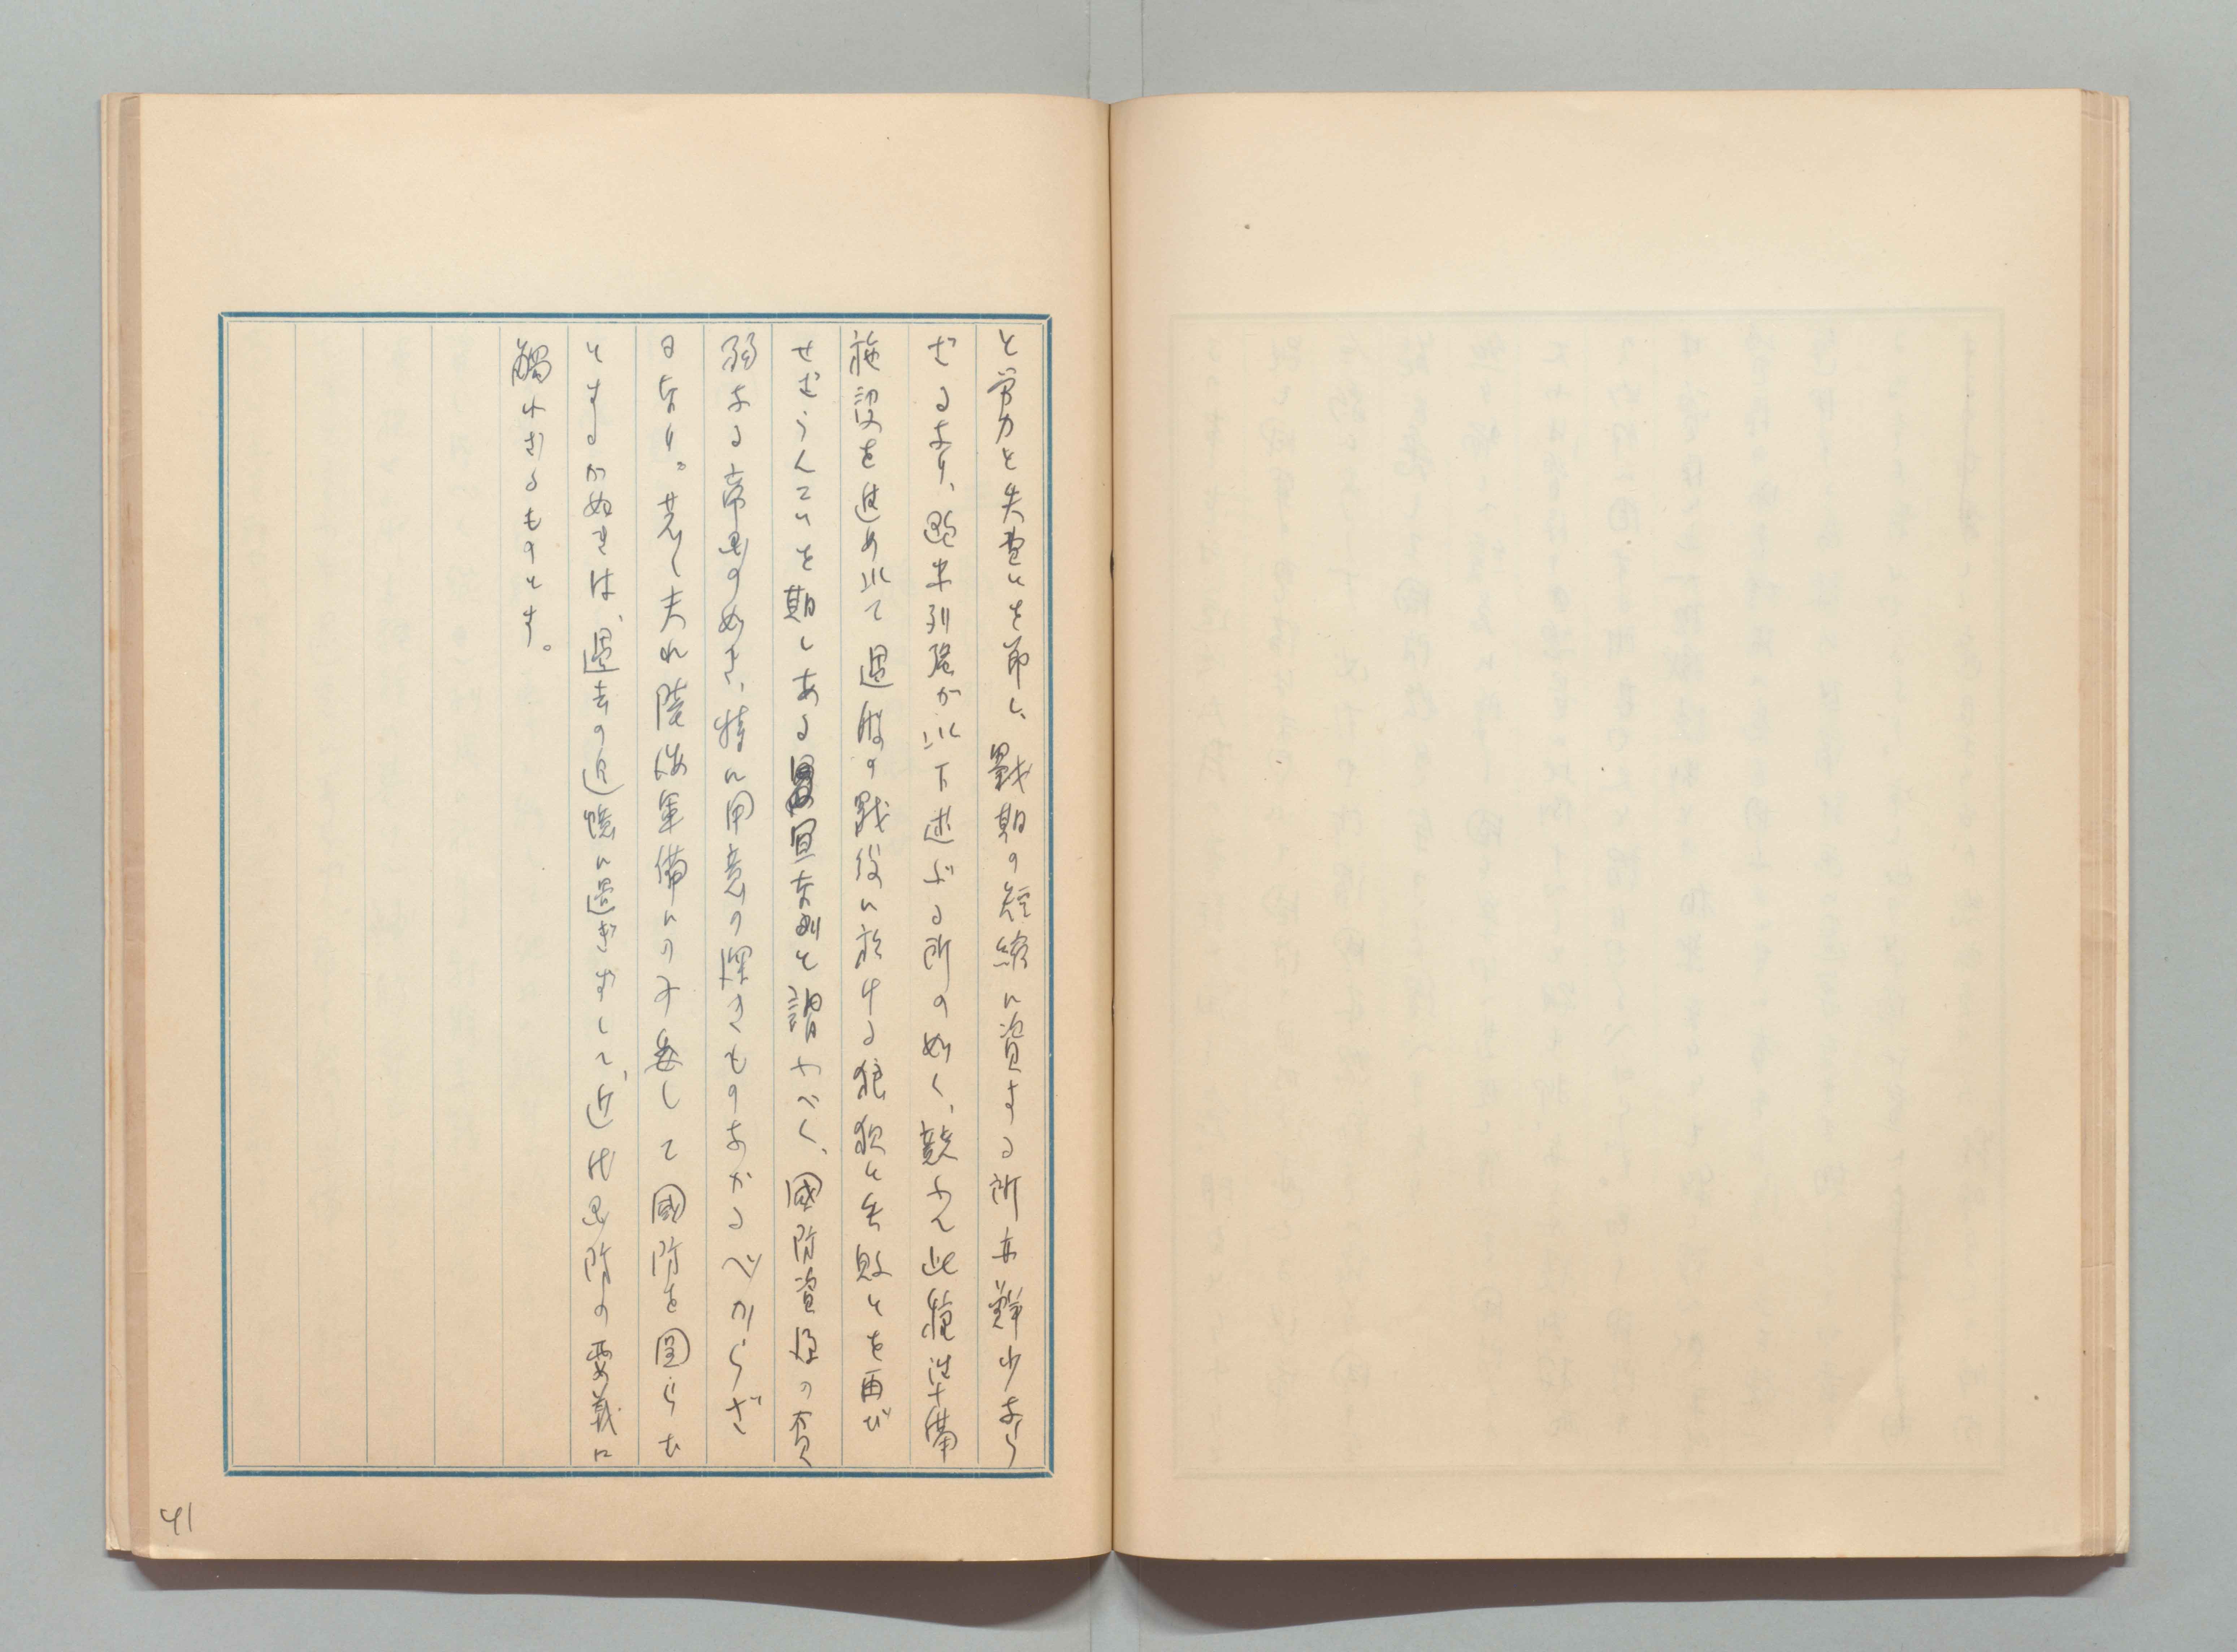 と労力と失費とを節し、戦期の短縮に資する所亦尠少なら
ざるなり、歐米列強が以下述ぶる所の如く、競ふて此種準備
施設を進め以て過般の戦役に於ける狼狽と失敗とを再び
せざらんことを期しある宜なりと謂ふべく、國防資源の貧
弱なる帝国の如き、特に用意の深きものなかるべからざ
るなり。若し夫れ陸海軍備にのみ委して國防を図らむ
とするが如きは、過去の追憶に過ぎずして、近代国防の要義に
觸れざるものとす。
41